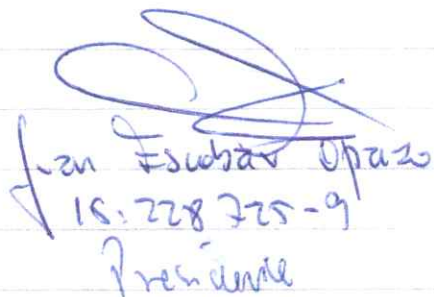 Juan Escobar Opazo
15.228.725-9
Presidente